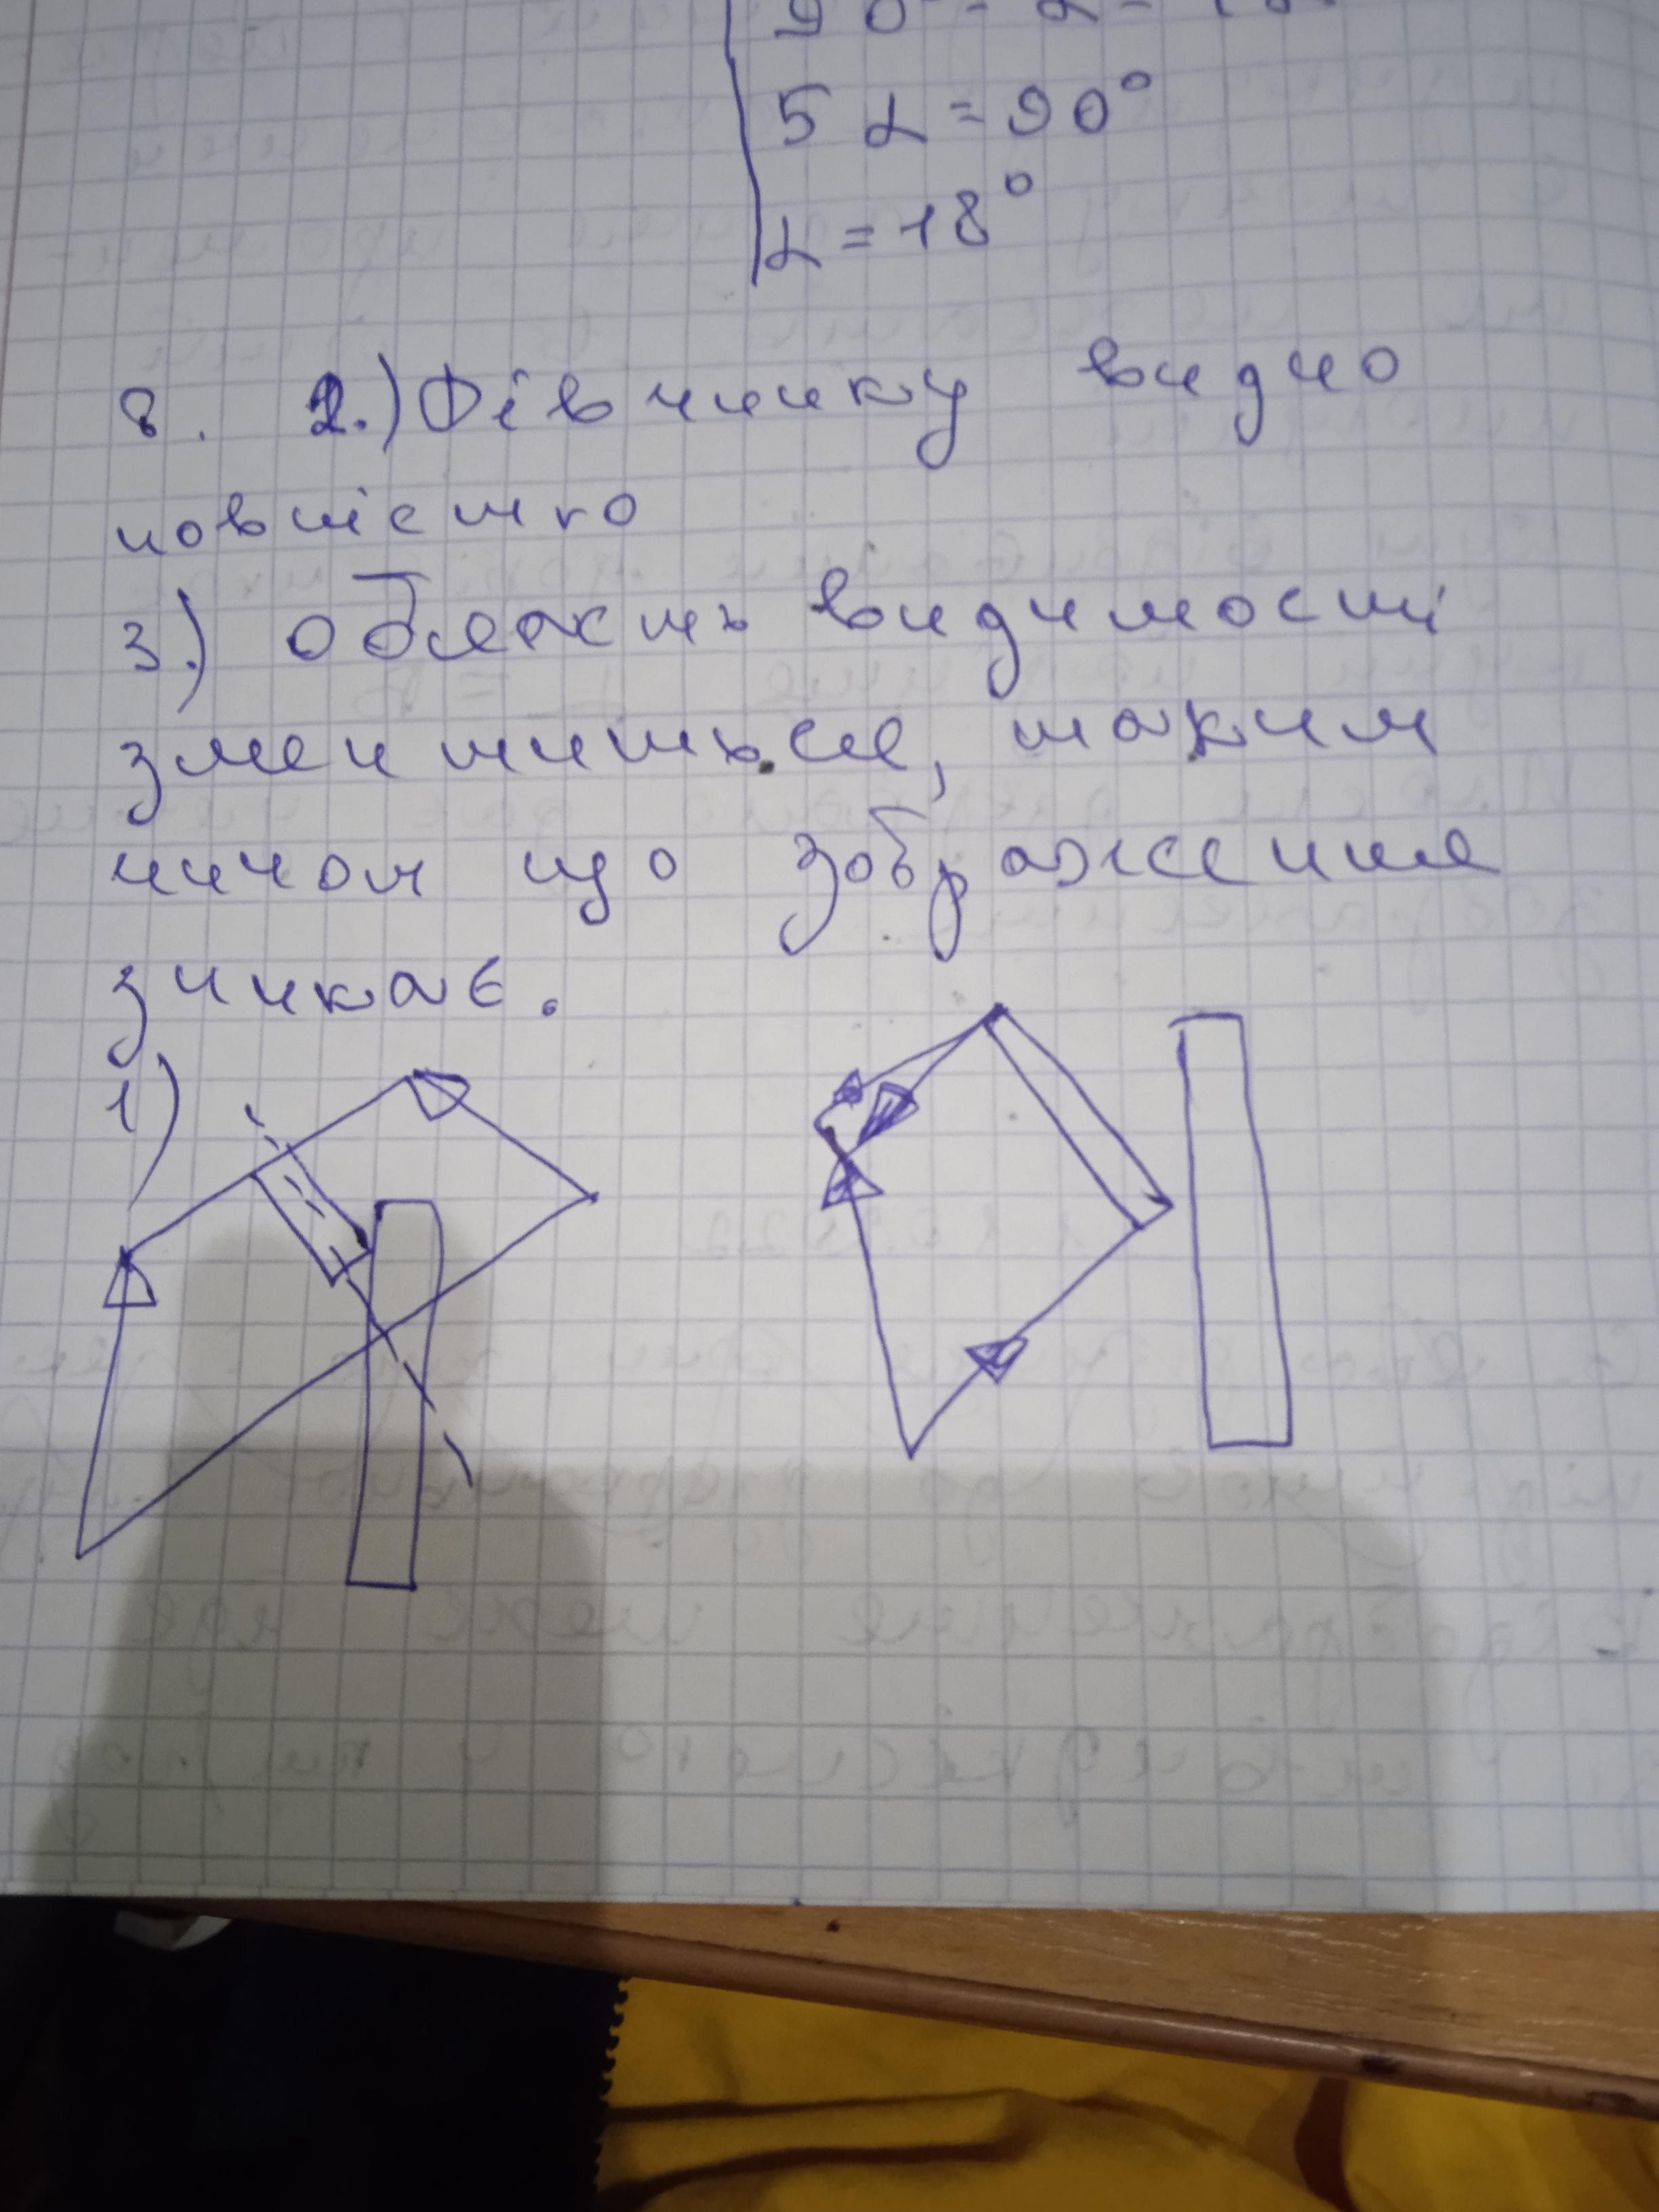 5α=90°
α=18°
8. 2.) Дівчинку видно
повністю
3.) область видимості
зменшиться, таким
чином що зображення
зникає.
1)